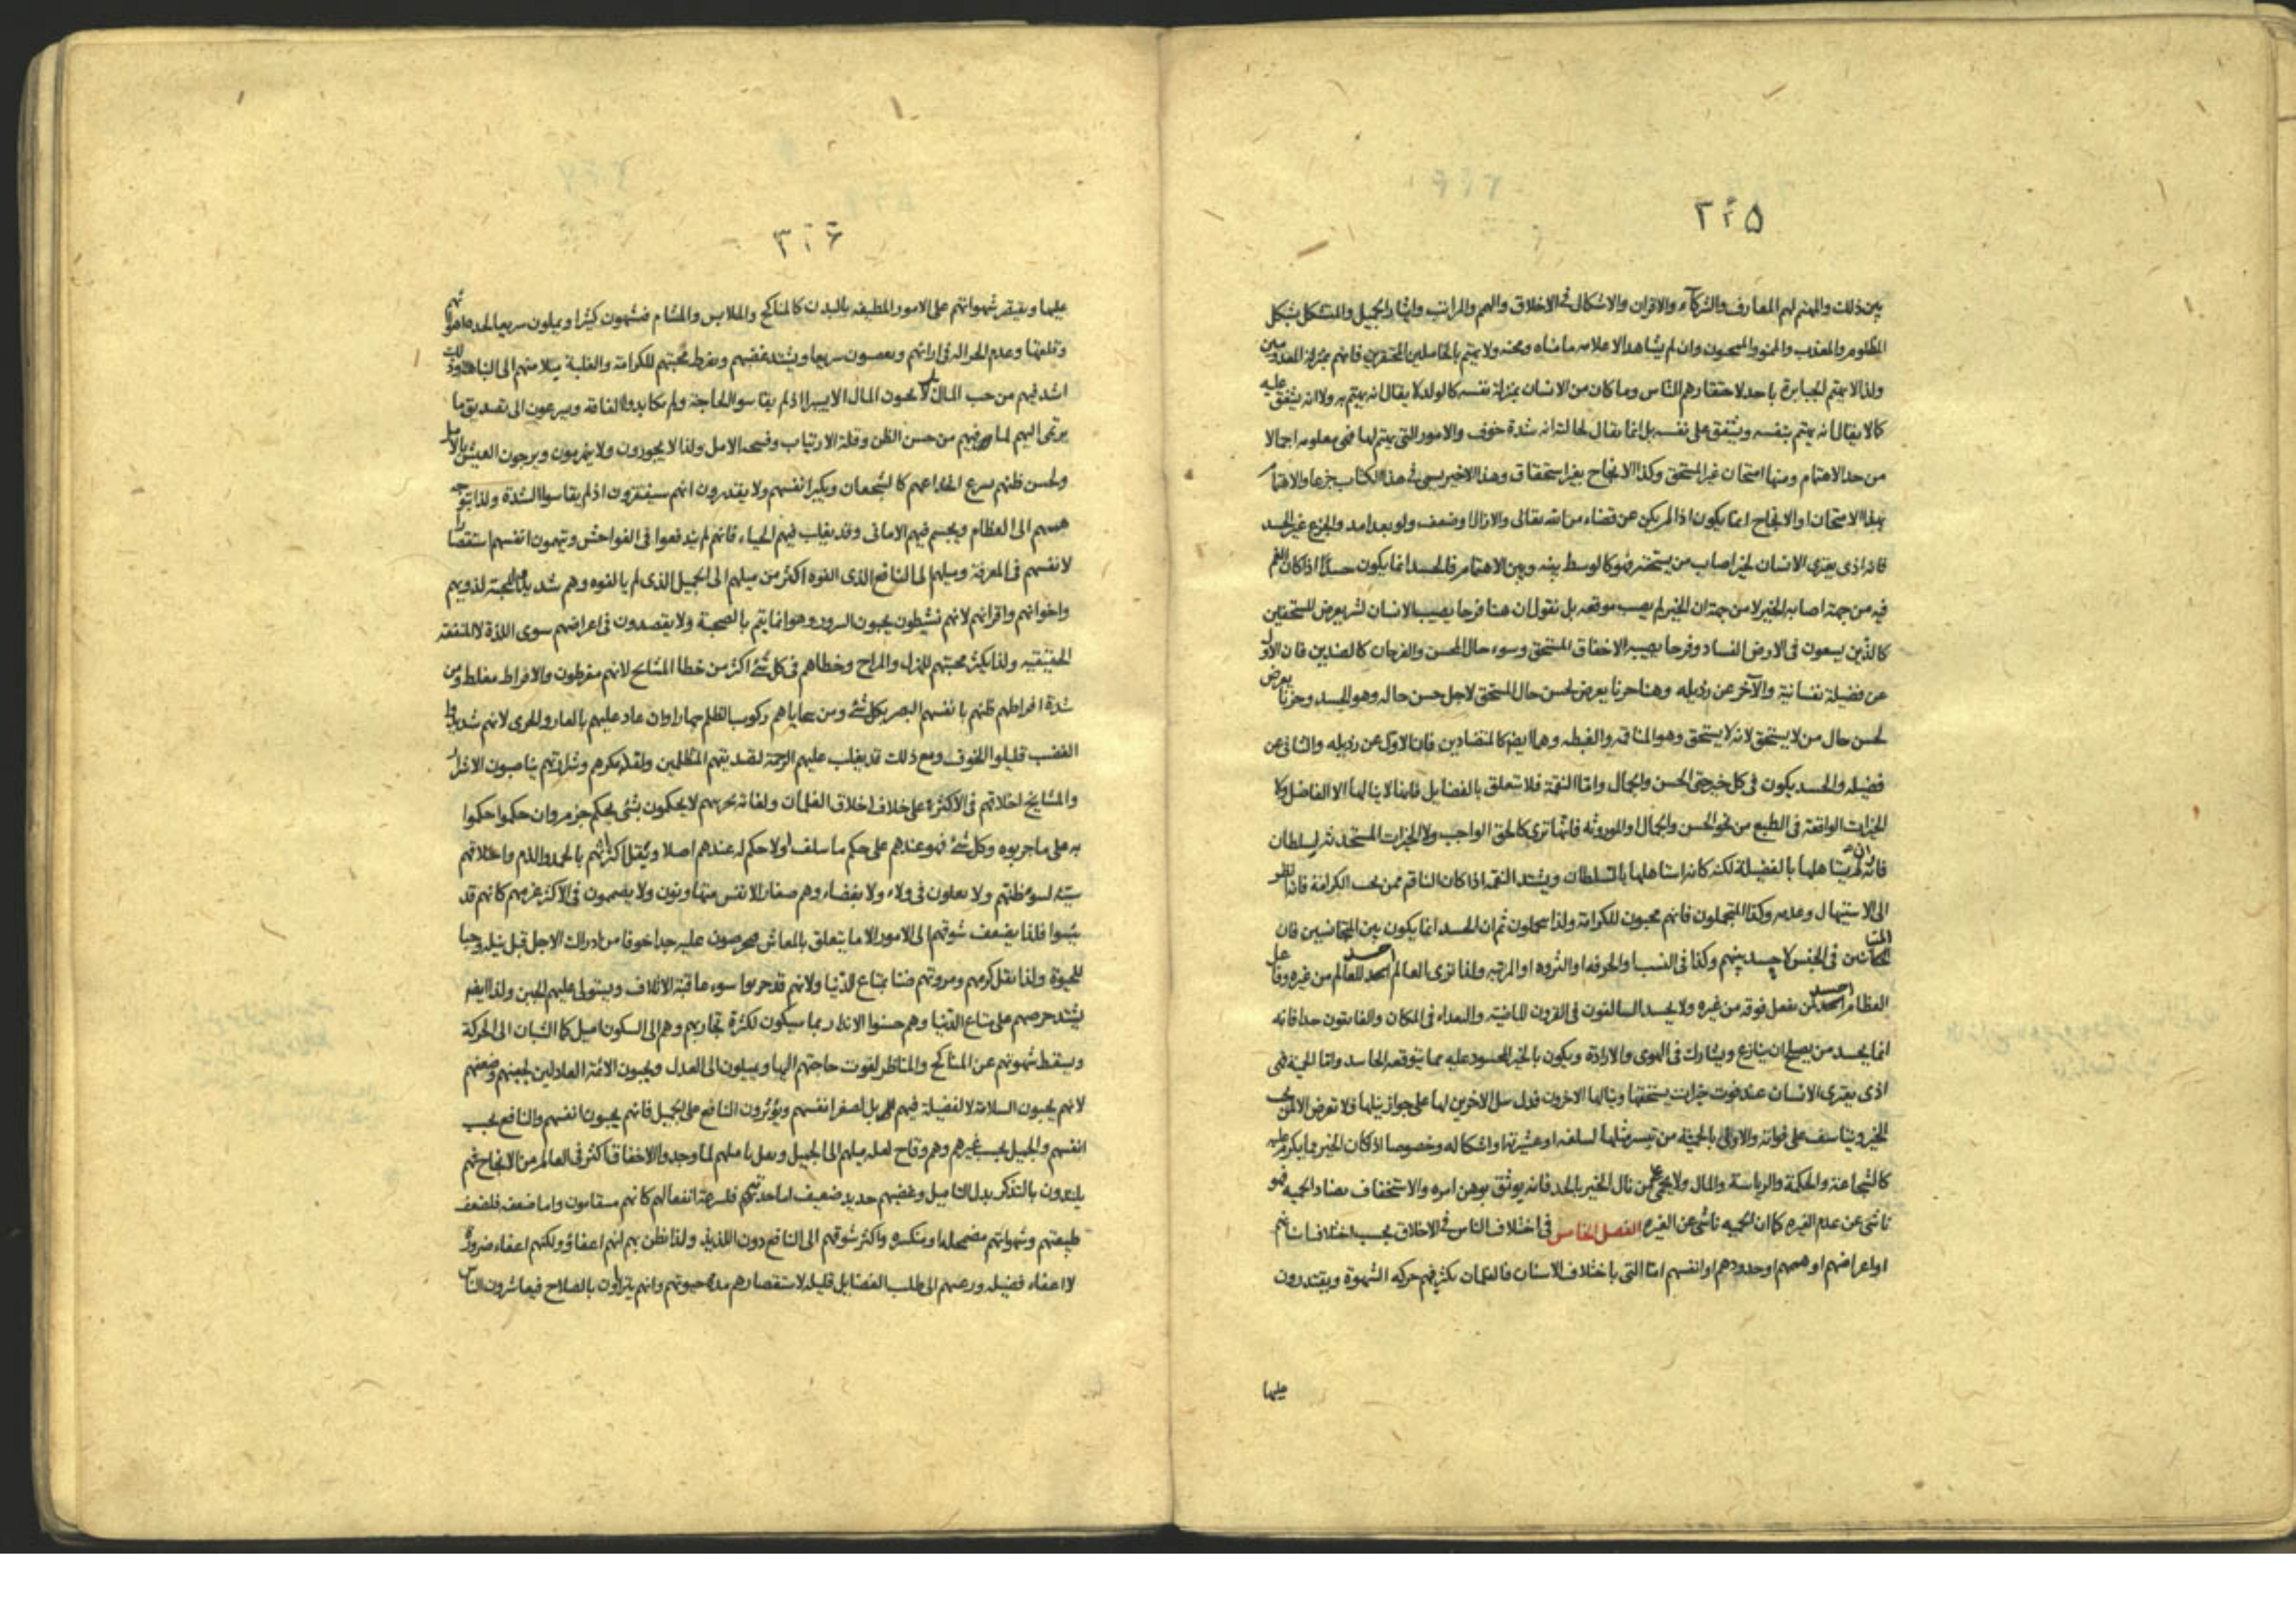 ٣٢٥
بين ذلك والمهتم لهم المعارف والشركآء والاقران والاشكال فى الاخلاق والهمم والمراتب وايثار الجميل والمتشكل بشكل
المظلوم والمعذب والممنو والمسجون وان لم يشاهد الا علامه ما مناه ومحنه ولا يهتم بالخاملين المحتقرين فانهم بمنزلة المعدومين
ولذا لا يهتم الجبابرة باحد لاحتقارهم الناس وما كان من الانسان بمنزلة نفسه كالولد لا يقال انه يهتم به ولا انه يشفق عليه
كما لا يقال انه يهتم بنفسه ويشفق على نفسه بل انما يقال لحالته انه شدة خوف والامور التى يهتم لها فهى معلومه اجمالا
من حد الاهتمام ومنها امتحان غير المستحق وكذا الانجاح بغير استحقاق وهذا الاخير يسمى فى هذا الكتاب جزعا والاهتمام
بهذا الامتحان او الانجاح انما يكون اذا لم يكن عن قضاء من الله تعالى والا زال او ضعف ولو بعد امد والجزع غير الحسد
فانه اذى يعترى الانسان لخير اصاب من يستحقه فهو كالوسط بينه وبين الاهتمام فالحسد انما يكون حسدًا اذا كان الغم
فيه من جهة اصابه الخير لا من جهة ان الخير لم يصب موقعه بل نقول ان هنا فرحا يصيب الانسان لشر يعرض للمستحقين
كالذين يسعون فى الارض الفساد وفرحا يصيبه لاخفاق المستحق وسوء حال المحسن والفرحان كالضدين فان الاول
عن فضيلة نفسانية والآخر عن رذيله وهنا حزنا يعرض لحسن حال المستحق لاجل حسن حاله وهو الحسد وحزنا يعرض
لحسن حال من لا يستحق لانه لا يستحق وهو المناقمه والغبطه وهما ايضا كالمتضادين فان الاول عن رذيله والثانى عن
فضيله والحسد يكون فى كل خير حتى الحسن والجمال واما النقمة فلا تتعلق بالفضايل فانها لا ينالها الا الفاضل ولا
الخيرات الواقعة فى الطبع من نحو الحسن والجمال او الموروثه فانها ترى كالحق الواجب ولا الخيرات المستحدثه لسلطان
فانه وان لم يستاهلها بالفضيلة لكنه كانه استاهلها بالسلطان ويشتد النقمه اذا كان الناقم ممن يحب الكرامة فانه ينظر
الى الاستيهال وعدمه وكذا المتجملون فانهم محبون للكرامة ولذا يتجملون ثم ان الحسد انما يكون بين المتجانسين فان
فى الجنس لا حسد بينهم وكذا فى النسب والحرفه او الثروه او المرتبه ولذا ترى العالم احسد للعالم من غيره وفاعل
العظائم احسد لمن يفعل فوقه من غيره ولا يحسد السالفون فى القرون الماضية والبعداء فى المكان والفايقون جدا فانه
انما يحسد من يصلح ان ينازع ويشارك فى الهوى والارادة ويكون بالخير المحسود عليه مما يتوقعه الحاسد واما الحمية فهى
اذى يعترى الانسان عند فوت خيرات يستحقها وينالها الاخرون فدل نيل الاخرين لها على جواز نيلها فلا تعرض الا لمن يحب
الخير ويتاسف على فواته والاولى بالحمية من تيسر مثلها لسلفه او عشيرته او اشكاله وخصوصا اذ كان الخير مما يكرم عليه
كالشجاعة والحكمة والرياسة والمال ولا يحمى عمن نال الخير بالجد فانه يوثق بوهن امره والاستخفاف يضاد الحميه فهو
ناشى عن عدم الغيره كما ان الحميه ناشى عن الغيره الفصل الخامس فى اختلاف الناس فى الاخلاق بحسب اختلاف اسنانهم
او اعراضهم او هممهم او جدودهم او انفسهم اما التى باختلاف الاسنان فالغلمان يكثر فيهم حركه الشهوة ويقتدرون
عليها
٣٢٦
عليها ويقتصر شهواتهم على الامور المطيفه بالبدن كالمناكح والملابس والمشام فيشتهون كثيرا ويملون سريعا لحدة اهوائهم
وتقلبها وعدم الجزاله فى ارائهم ويغضبون سريعا ويشتد غضبهم ويفرط محبتهم للكرامة والغلبة ميلا منهم الى النباهة وذلك
اشد فيهم من حب المال بل لا يحبون المال الا يسيرا اذ لم يقاسوا الحاجة ولم يكابدوا الفاقه ويسرعون الى تصديق ما
يرقى اليهم لما فيهم من حسن الظن وقلة الارتياب وفسحه الامل ولذا لا يجورون ولا يغرمون ويرجون العيش بالامل
ولحسن ظنهم يسرع انخداعهم كالشجعان ويكبر انفسهم ولا يقدرون انهم سيفتقرون اذ لم يقاسوا الشدة ولذا يتوجه
هممهم الى العظام ويجسم فيهم الامانى وقد يغلب فيهم الحياء فانهم لم يندفعوا فى الفواحش ويتهمون انفسهم استقصارا
لانفسهم فى المعرفة وميلهم الى النافع الذى الفوه اكثر من ميلهم الى الجميل الذى لم يالفوه وهم شديدوا المحبة لذويهم
واخوانهم واقرانهم لانهم نشيطون يحبون السرور وهو انما يتم بالصحبة ولا يقصدون فى اعراضهم سوى اللذة لا المنفعة
الحقيقيه ولذا يكثر محبتهم للهزل والمراح وخطاهم فى كل شئ اكثر من خطا المشايخ لانهم مفرطون والافراط مغلط ومن
شدة افراطهم ظنهم بانفسهم البصر بكل شئ ومن سجاياهم ركوب الظلم جهارا وان عاد عليهم بالعار والخزى لانهم شديدوا
الغضب قليلوا الخوف ومع ذلك قد يغلب عليهم الرحمة لتصديقهم المتظلمين ولقلة مكرهم وشرارتهم يناصبون الاشرار
والمشايخ اخلاقهم فى الاكثر على خلاف اخلاق الغلمان ولفناء تجربهم لا يحكمون بشئ بحكم جزم وان حكموا حكموا
به على ما جربوه وكل شئ فهو عندهم على حكم ما سلف او لا حكم له عندهم اصلا ويقل اكتراثهم بالحمد والذم واخلاقهم
سيئه لسوء ظنهم ولا يغلون فى ولاء ولا بغضاء وهم صغار الانفس متهاونون ولا يصممون فى الاكثر عزمهم كانهم قد
يئسوا فلذا يضعف شوقهم الى الامور الا ما يتعلق بالمعاش فيحرصون عليه جدا خوفا من ادراك الاجل قبل نيله وحبا
للحيوة ولذا يقل كرمهم ومروتهم ضنا بمتاع الدنيا ولانهم قد جربوا سوء عاقبة الاتلاف ويستولى عليهم الجبن ولذا ايضا
يشتد حرصهم على متاع الدنيا وهم حسنوا الانذار بما سيكون لكثرة تجاربهم وهم الى السكون اميل كما الشبان الى الحركة
ويسقط شهوتهم عن المناكح والمناظر لفوت حاجتهم اليها ويميلون الى العدل ويحبون الائمة العادلين لجبنهم وضعفهم
لانهم يحبون السلامة لا لفضيلة فيهم بل لصغر انفسهم ويؤثرون النافع على الجميل فانهم يحبون انفسهم والنافع يحب
انفسهم والجميل يحب غيرهم وهم وقاح لقله ميلهم الى الجميل ويقل تاميلهم لما وجدوا الاخفاق اكثر فى العالم من الانجاح فهم
يلتذون بالتذكر بدل التاميل وغضبهم حديد ضعيف اما حدتهم فلسرعة انفعالهم كانهم مسقامون واما ضعفه فلضعف
طبيعتهم وشهواتهم مضمحلة او منكسره واكثر شوقهم الى النافع دون اللذيذ ولذا يظن بهم انهم اعفاؤ ولكنهم اعفاء ضرورة
لا اعفاء فضيله ورغبتهم الى طلب الفضايل قليله لاستقصارهم مدة حيوتهم وانهم يتراؤن بالصلاح فيعاشرون الناس